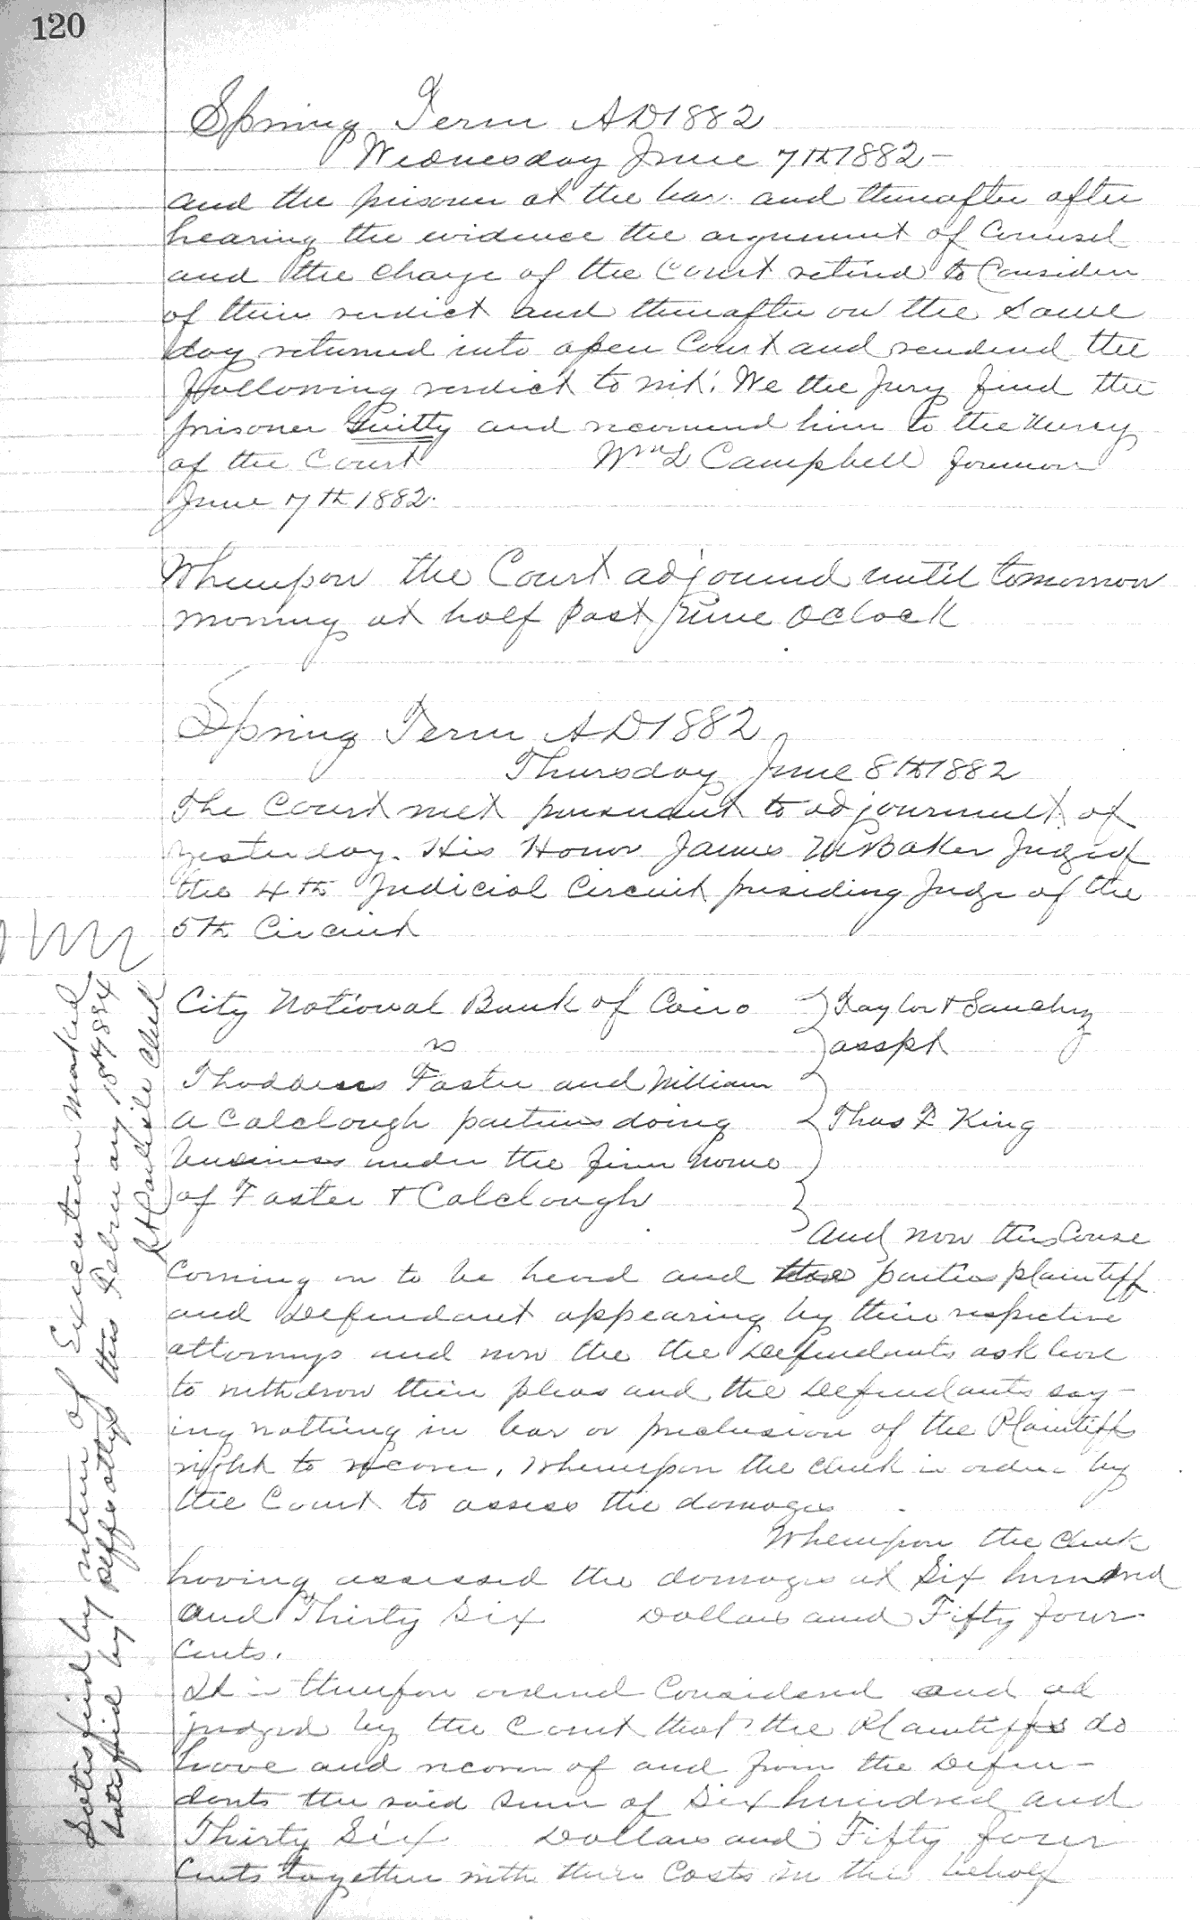 120
Spring Term AD 1882
Wednesday June 7th 1882 -
and the prisoner at the bar. and thereafter after
hearing the evidence the argument of Counsel
and the charge of the Court retired to Consider
of their verdict and thereafter on the Same
day returned into open Court and rendered the
following verdict to wit: We the Jury find the
prisoner Guilty and recomend him to the Mercy
of the Court Wm D Campbell foreman
June 7th 1882.
Whereupon the Court adjourned until tomorrow
morning at half Past Nine OClock
Spring Term AD 1882
Thursday June 8th 1882
The Court met pursuant to adjournmt. of
Yesterday. His Honor James M Baker Judge of
the 4th Judicial Circuit presiding Judge of the
5th Circuit
City National Bank of Cairo } Taylor & Sanchez
vs
Thaddeus Foster and William
A Calclough partners doing } Thos F King
business under the firm name
of Foster & Calclough
And now this Cause
Coming on to be heard and the parties plaintiff
and Defendant appearing by their respective
attorneys and now the the Defendants ask leave
to withdraw their pleas and the Defendants say-
ing nothing in bar or preclusion of the Plaintiffs
right to recover, Whereupon the Clerk is order by
the Court to assess the damages
Whereupon the Clerk
having assessed the damages at Six hundred
and Thirty Six Dollars and Fifty four
Cents.
It is therefore ordered Considered and ad
judged by the Court that the Plaintiffs do
have and recover of and from the Defen-
dants the said Sum of Six hundred and
Thirty Six Dollars and Fifty four
Cents together with their Costs in this behalf
Satisfied by return of Execution marked
Satisfied by Sheriff this February 18th 1884
Clerk